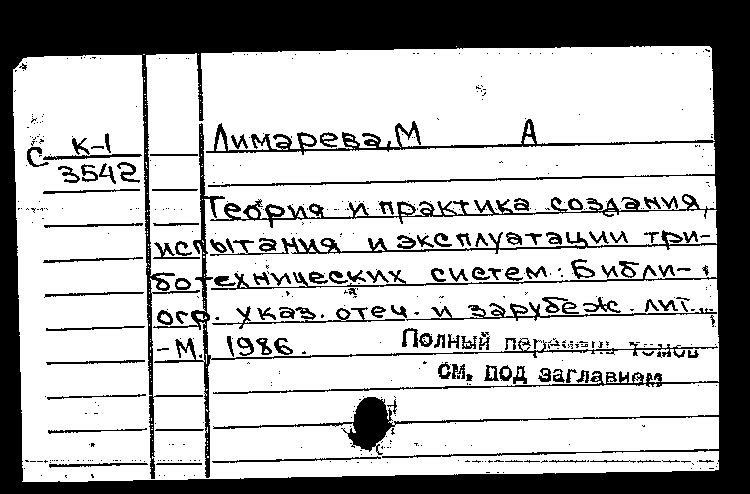 Лимарева, М А
С К-1
3542
Теория и практика создания,
испытания и эксплуатации три-
ботехнических систем: Библи-
огр. указ. отеч. и зарубеж. лит...
-М., 1986.
Полный перечень томов
см. под заглавием